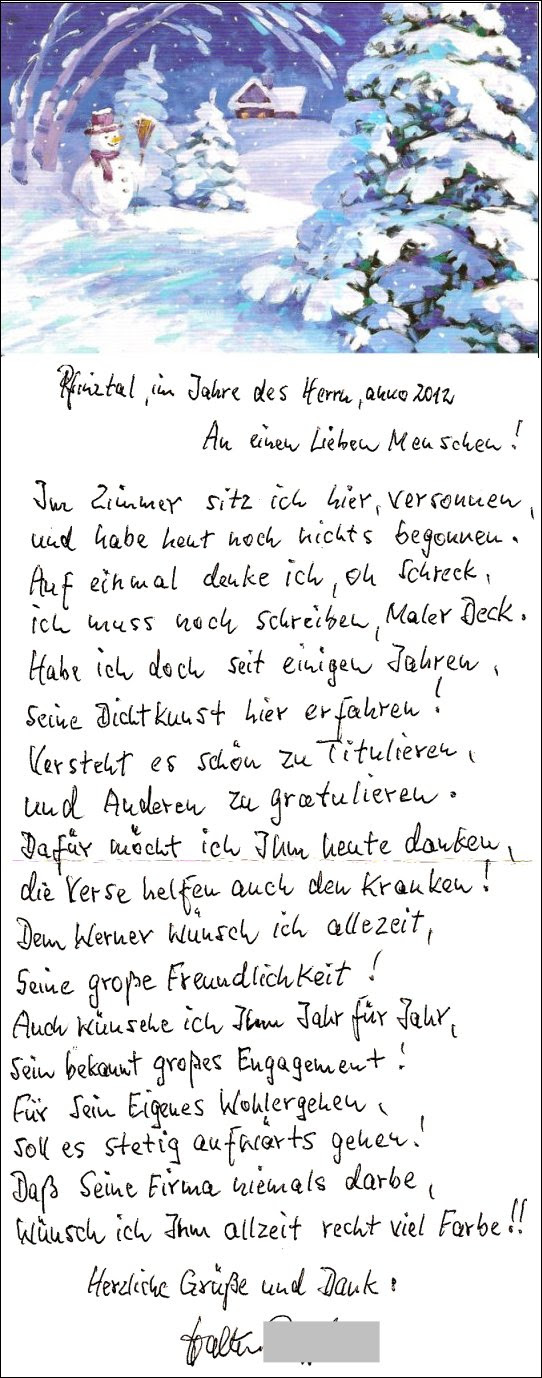 Pfinztal, im Jahre des Herrn, anno 2012
An einen Lieben Menschen!
Im Zimmer sitz ich hier, versonnen,
und habe heut noch nichts begonnen.
Auf einmal denke ich, oh Schreck,
ich muss noch schreiben, Maler Deck.
Habe ich doch seit einigen Jahren,
seine Dichtkunst hier erfahren!
Versteht es schön zu Titulieren,
und Anderen zu gratulieren.
Dafür möcht ich Ihm heute danken,
die Verse helfen auch den Kranken!
Dem Werner Wünsch ich allezeit,
Seine große Freundlichkeit!
Auch wünsche ich Ihm Jahr für Jahr,
sein bekannt großes Engagement!
Für Sein Eigenes Wohlergehen,
soll es stetig aufwärts gehen!
Daß Seine Firma niemals darbe,
Wünsch ich Ihm allzeit recht viel Farbe!!
Herzliche Grüße und Dank.
Walter